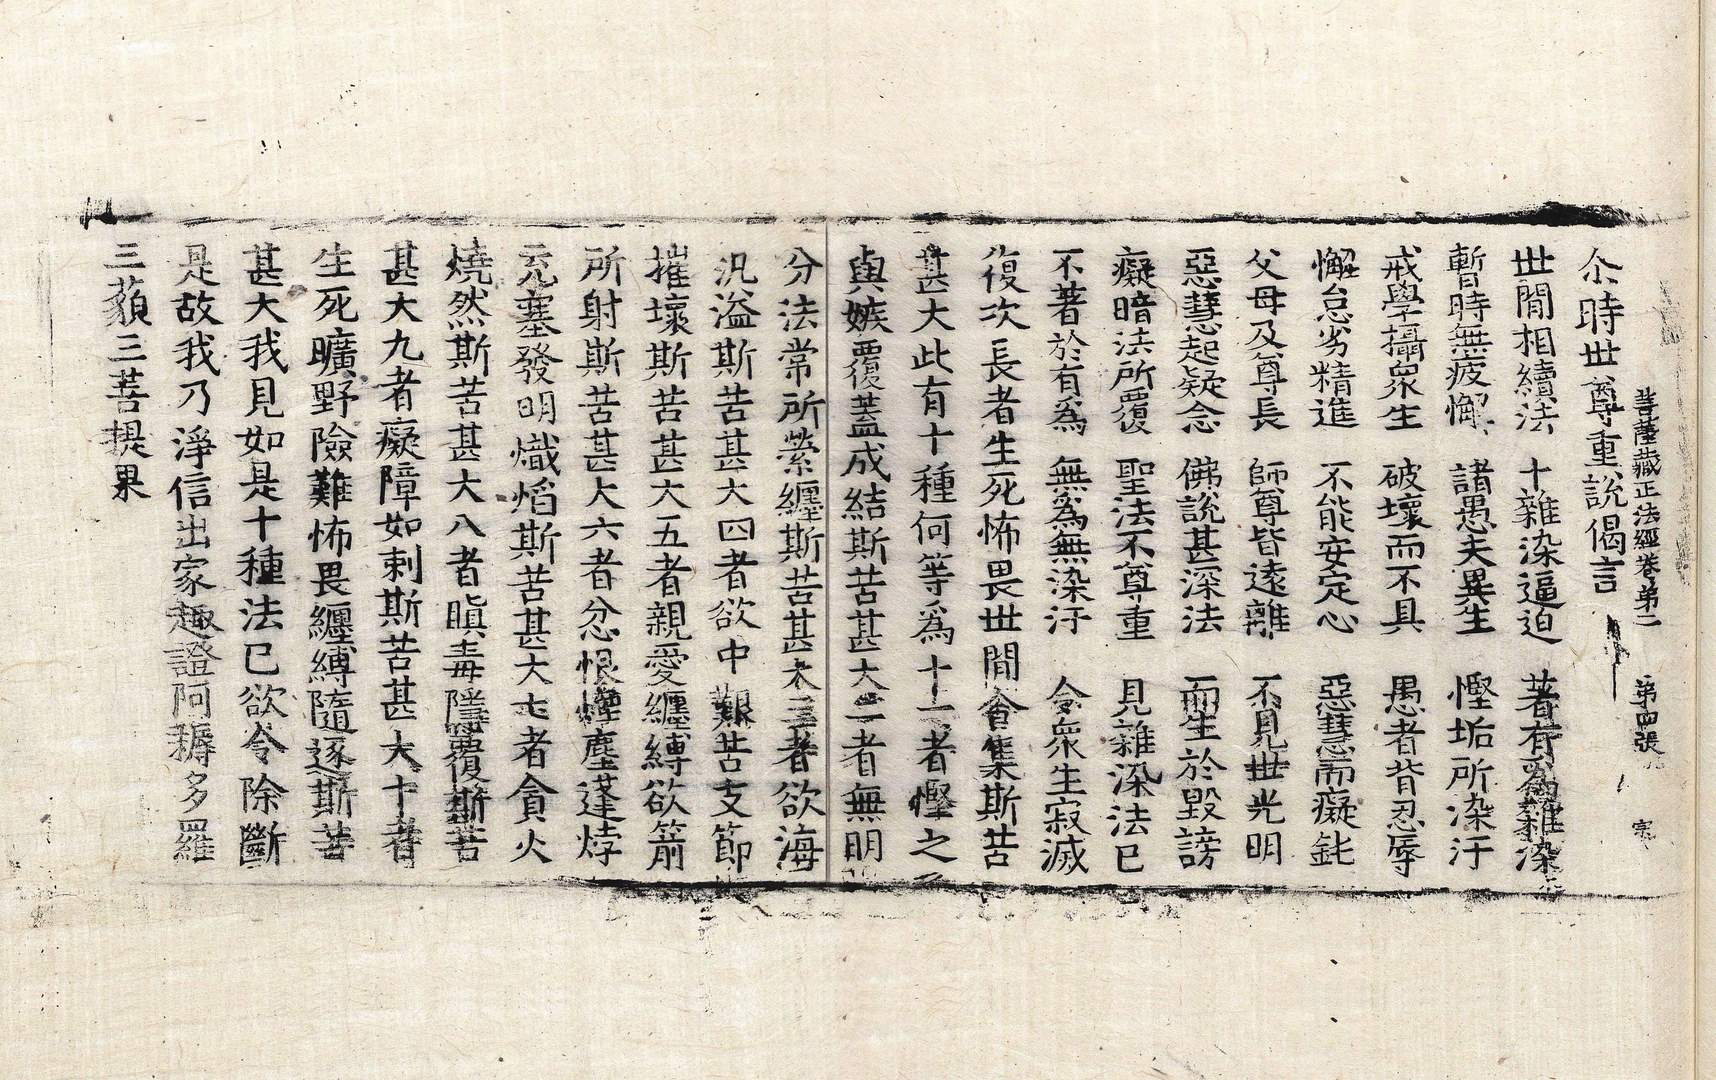 菩薩藏正法經卷第二 第四張 宗
尒時世尊重說偈言
世間相續法 十雜染逼迫 著有為雜染
暫時無疲懈 諸愚夫異生 慳垢所染汙
戒學攝衆生 破壞而不具 愚者背忍辱
懈怠劣精進 不能安定心 惡慧而癡鈍
父母及尊長 師尊皆遠離 不見世光明
惡慧起疑念 佛說甚深法 而生於毀謗
癡暗法所覆 聖法不尊重 見雜染法已
不著於有為 無為無染汙 令衆生寂滅
復次長者生死怖畏世間會集斯苦
甚大此有十種何等為十一者慳之
與嫉覆蓋成結斯苦甚大二者無明
分法常所縈纏斯苦甚大三者欲海
汎溢斯苦甚大四者欲中艱苦支節
摧壞斯苦甚大五者親愛纏縛欲箭
所射斯苦甚大六者忿恨煙塵蓬悖
充塞發明熾焰斯苦甚大七者貪火
燒然斯苦甚大八者瞋毒隱覆斯苦
甚大九者癡障如刺斯苦甚大十者
生死曠野險難怖畏纏縛隨逐斯苦
甚大我見如是十種法已欲令除斷
是故我乃淨信出家趣證阿耨多羅
三藐三菩提果